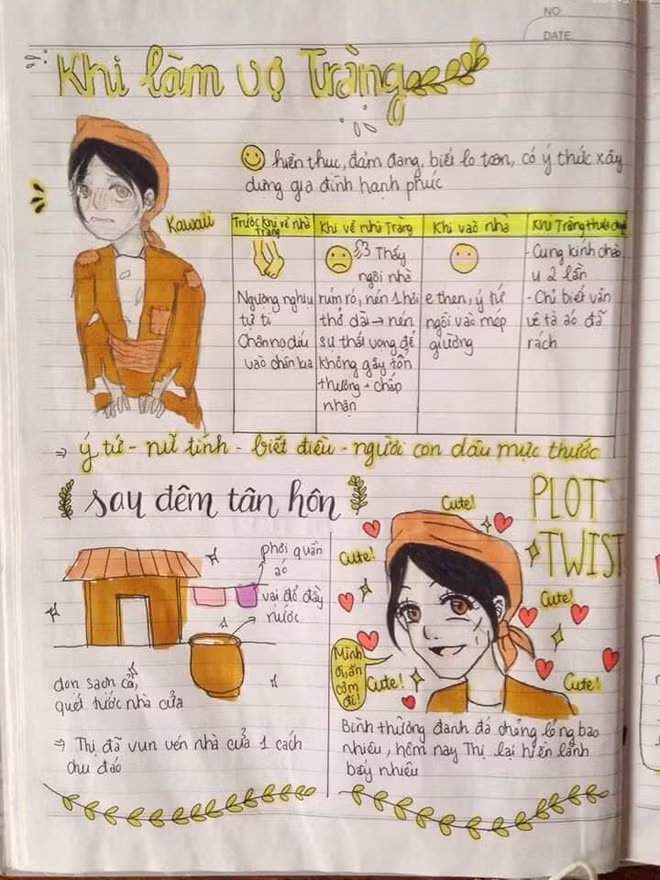 NO:
DATE:
Khi làm vợ Tràng
hiền thục, đảm đang, biết lo toan, có ý thức xây
dựng gia đình hạnh phúc
Kawaii
Trước khi về nhà
Tràng
Ngượng nghịu
tự ti
Chân nọ díu
vào chân kia
Khi về nhà Tràng
Thấy
ngôi nhà
rúm ró, nén 1 hơi
thở dài → nén
sự thất vọng để
không gây tổn
thương + chấp
nhận
Khi vào nhà
e thẹn, ý tứ
ngồi vào mép
giường
Khi Tràng
- Cung kính chào
u 2 lần
- Chỉ biết vân
vê tà áo đã
rách
⇒ ý tứ - nữ tính - biết điều - người con dâu mực thước
say đêm tân hôn
phơi quần
áo
vại đổ đầy
nước
dọn sạch cỏ,
quét tước nhà cửa
⇒ Thị đã vun vén nhà cửa 1 cách
chu đáo
PLOT
TWIST
Cute!
Cute!
Cute!
Cute!
Cute!
Mình
ơi, ăn
cơm
đi!
Bình thường đanh đá chỏng lỏng bao
nhiêu, hôm nay Thị lại hiền lành
bấy nhiêu